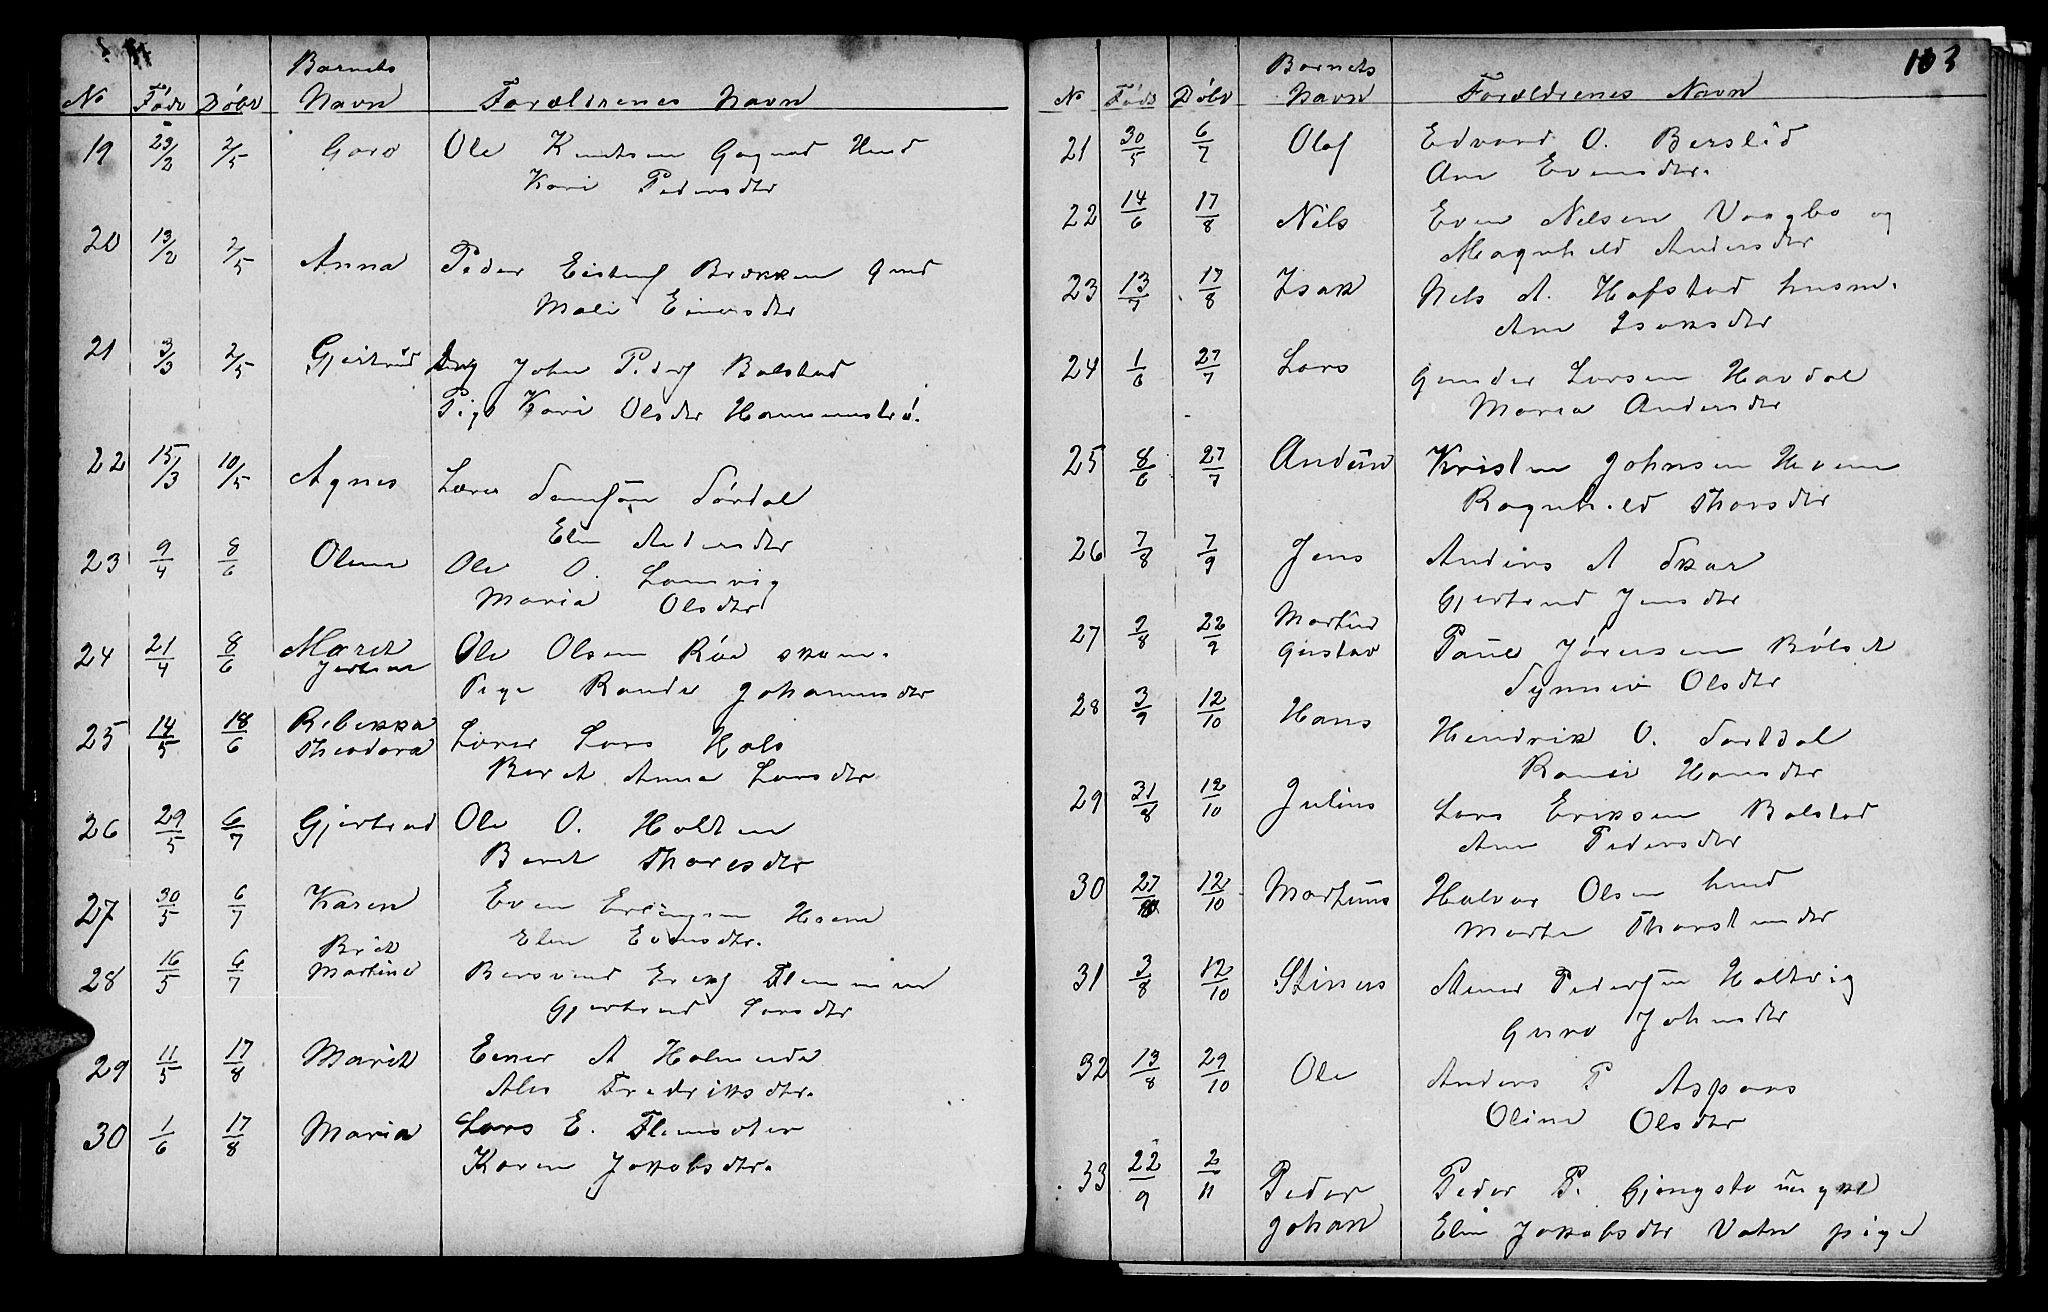 Barnets
No Født Døbt Navn Forældrenes Navn
19 29/2 2/5 Guro Ole Knutsen Hmd
Kari Pedersdtr
20 13/2 2/5 Anna Peder Eistensf Brækken Gmd
Mali Einersdtr
21 3/3 2/5 Gjertrud Ung John Pedersf Bolstad
Pige Kari Olsdtr
22 15/3 10/5 Agnes Lærer Samson Sördal
Elen Andersdtr
23 9/4 8/6 Olina Ole O. Lomvig
Maria Olsdtr
24 21/4 8/6 Marit Ole Olsen Röe skom.
Pige Randi Johannesdtr
25 14/5 18/6 Rebekka Theodora Lærer Lars Hals
Berit Anna Larsdtr
26 29/5 6/7 Gjertrud Ole O. Holten
Berit Thoresdtr
27 30/5 6/7 Karen Even Erlingsen Hoem
Elen Evensdtr.
28 16/5 6/7 Brit Martine Bersvend Flemmen
Gjertrud Larsdtr
29 11/5 17/8 Marit Einer A Holmeide
Ales Fredriksdtr.
30 1/6 17/8 Maria Lars E. Flemsæter
Karen Jakobsdtr.
103
Barnets
No Født Døbt Navn Forældrenes Navn
21 30/5 6/7 Olaf Edvard O. Berslid
Ane Evensdtr.
22 14/6 17/8 Nils Even Nilsen Vaagbo og
Magnhild Andersdtr
23 13/7 17/8 Isak Nils A. Hofstad husm.
Ane Isaksdtr
24 1/6 27/7 Lars Gunder Larsen Havdal
Maria Andersdtr
25 8/6 27/7 Andein Kristen Johnsen Hevem
Ragnhild Thorsdtr
26 7/8 7/9 Jens Anders A Skar
Gjertrud Jensdtr
27 9/8 22/9 Martin Gustav Paul Jörensen Bölset
Synnev Olsdtr
28 3/9 12/10 Hans Hendrik O. Sortdal
Randi Hansdtr
29 31/8 12/10 Julius Lars Eriksen Bolstad
Ane Pedersdtr
30 27/8 12/10 Martinus Halvor Olsen hmd
Marte Thorstendtr
31 3/8 12/10 Stinus Einer Pedersen Holtvig
Guro Johnsdtr
32 13/8 29/10 Ole Anders P Aspaas
Oline Olsdtr
33 22/9 2/11 Peder Johan Peder P. Gjengstø ungkl
Elen Jakobsdtr Vatn pige